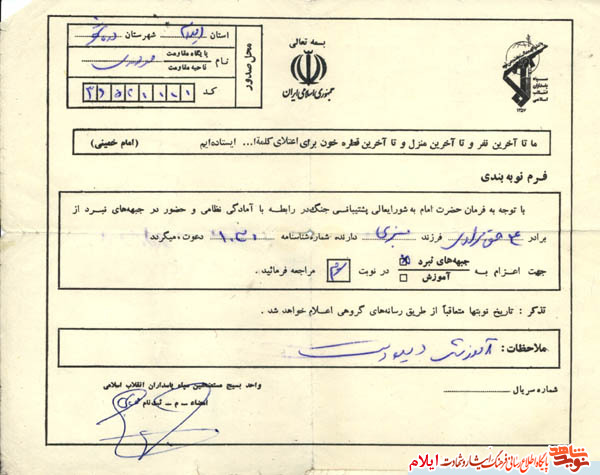 بسمه تعالی
جمهوری اسلامی ایران
سپاه
پاسداران
انقلاب
اسلامی
محل صدور
استان ایلام شهرستان
پایگاه مقاومت
نام
ناحیه مقاومت
کد
ما تا آخرین نفر و تا آخرین منزل و تا آخرین قطره خون برای اعتلای کلمةا... ایستاده‌ایم (امام خمینی)
فرم نوبه بندی
با توجه به فرمان حضرت امام به شورایعالی پشتیبانی جنگ در رابطه با آمادگی نظامی و حضور در جبهه‌های نبرد از
برادر فرزند دارنده شماره شناسنامه دعوت میگردد
جهت اعزام به جبهه‌های نبرد در نوبت مراجعه فرمائید.
آموزش
تذکر : تاریخ نوبتها متعاقباً از طریق رسانه‌های گروهی اعلام خواهد شد .
ملاحظات: آموزشی دیده است
شماره سریال
واحد بسیج مستضعفین سپاه پاسداران انقلاب اسلامی
امضاء - م - ثبت نام
نوید شاهد پایگاه اطلاع رسانی فرهنگ ایثار و شهادت ایلام